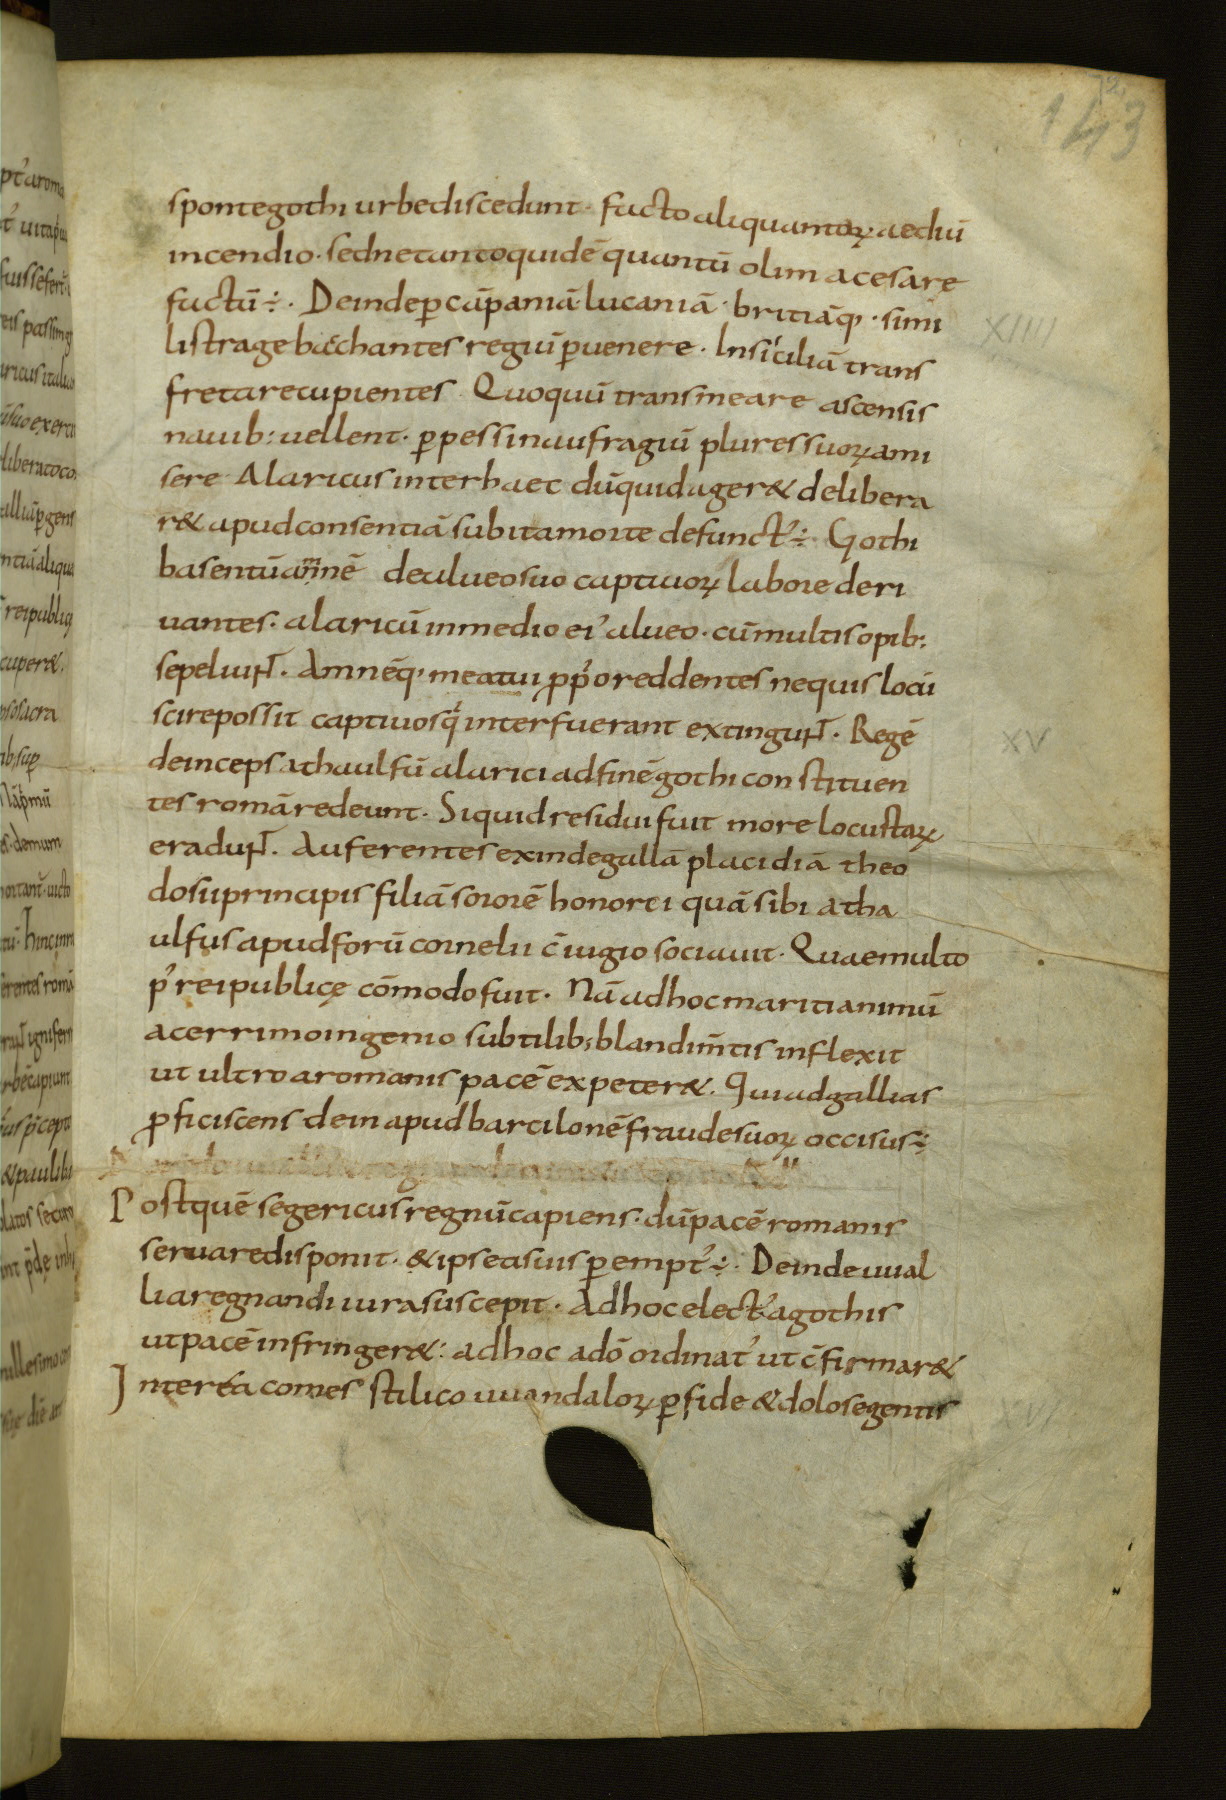 143
sponte gothi urbe discedunt · facto aliquantoꝝ aediū
incendio · sed ne tanto quidē quantū olim a cesare
factū÷ · Deinde ꝑ cāpaniā · lucaniā · britiāq; · simi
li strage bachantes regiū ꝑuenere · In siciliā trans
fretare cupientes Quo quū transmeare ascensis
nauib: uellent · ꝑpessi naufragiū plures suoꝝ ami
sere Alaricus inter haec dū quid ager& delibera
r& apud consentiā subita morte defunct᾽÷ · Gothi
basentū amnē de alueo suo captiuoꝝ labore deri
uantes · alaricū in medio ei᾽ alueo · cū multis opib:
sepeliuŦ · Amnēq; meatui ꝓprio reddentes ne quis locū
scire possit captiuos q̇ interfuerant extinguŦ · Regē
deinceps athaulfū alarici adfinē gothi constituen
tes romā redeunt · Siquid residui fuit more locustaꝝ
eraduŦ · Auferentes exinde gallā placidiā theo
dosii principis filiā sororē honorei quā sibi atha
ulfus apud forū cornelii c̄iugio sociauit · Quae multo
p᾽ reipublicę cōmodo fuit · Nā adhoc mariti animū
acerrimo ingenio subtilib; blandim̄tis inflexit
ut ultro a romanis pacē expeter& · Qui ad gallias
ꝓficiscens dein apud barcilonē fraude suoꝝ occisus÷
Post quē segericus regnū capiens · dū pacē romanis
seruare disponit · & ipse a suis ꝑempt᾽÷ · Deinde uual
lia regnandi iura suscepit · Ad hoc elect᾽ a gothis
ut pacē infringer& : ad hoc a dō ordinat᾽ ut c̄firmar&
Interea comes stilico uuandaloꝝ ꝑfide & dolose gentis
XIIII
XV
XVI